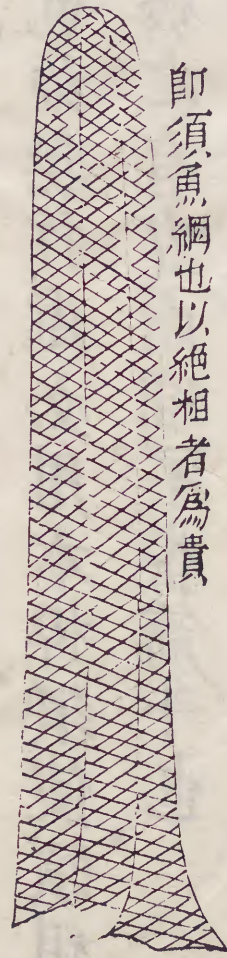 即須魚網也以絕粗者為貴